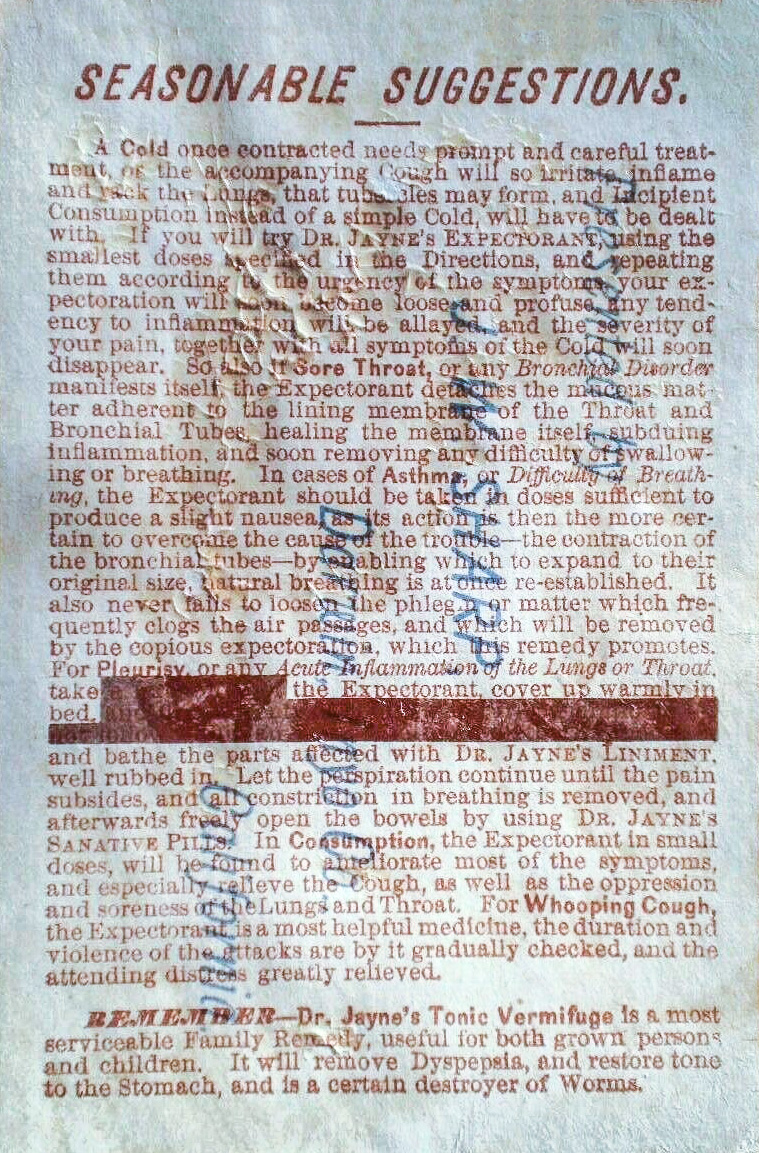 SEASONABLE SUGGESTIONS.
A Cold once contracted needs prompt and careful treat-
ment, or the accompanying Cough will so irritate, inflame
and rack the Lungs, that tubercles may form, and Incipient
Consumption instead of a simple Cold, will have to be dealt
with. If you will try DR. JAYNE'S EXPECTORANT, using the
smallest doses specified in the Directions, and repeating
them according to the urgency of the symptoms, your ex-
pectoration will soon become loose and profuse, any tend-
ency to inflammation will be allayed, and the severity of
your pain, together with all symptoms of the Cold will soon
disappear. So also if Sore Throat, or any Bronchial Disorder
manifests itself, the Expectorant detaches the mucous mat-
ter adherent to the lining membrane of the Throat and
Bronchial Tubes, healing the membrane itself, subduing
inflammation, and soon removing any difficulty of swallow-
ing or breathing. In cases of Asthma, or Difficulty of Breath-
ing, the Expectorant should be taken in doses sufficient to
produce a slight nausea, as its action is then the more cer-
tain to overcome the cause of the trouble—the contraction of
the bronchial tubes—by enabling which to expand to their
original size, natural breathing is at once re-established. It
also never fails to loosen the phlegm or matter which fre-
quently clogs the air passages, and which will be removed
by the copious expectoration, which this remedy promotes.
For Pleurisy, or any Acute Inflammation of the Lungs or Throat,
take the Expectorant, cover up warmly in
bed,
and bathe the parts affected with DR. JAYNE'S LINIMENT,
well rubbed in. Let the perspiration continue until the pain
subsides, and all constriction in breathing is removed, and
afterwards freely open the bowels by using DR. JAYNE'S
SANATIVE PILLS. In Consumption, the Expectorant in small
doses, will be found to ameliorate most of the symptoms,
and especially relieve the Cough, as well as the oppression
and soreness of the Lungs and Throat. For Whooping Cough,
the Expectorant is a most helpful medicine, the duration and
violence of the attacks are by it gradually checked, and the
attending distress greatly relieved.
REMEMBER—Dr. Jayne's Tonic Vermifuge is a most
serviceable Family Remedy, useful for both grown persons
and children. It will remove Dyspepsia, and restore tone
to the Stomach, and is a certain destroyer of Worms.
Presented by
SHARP
California.